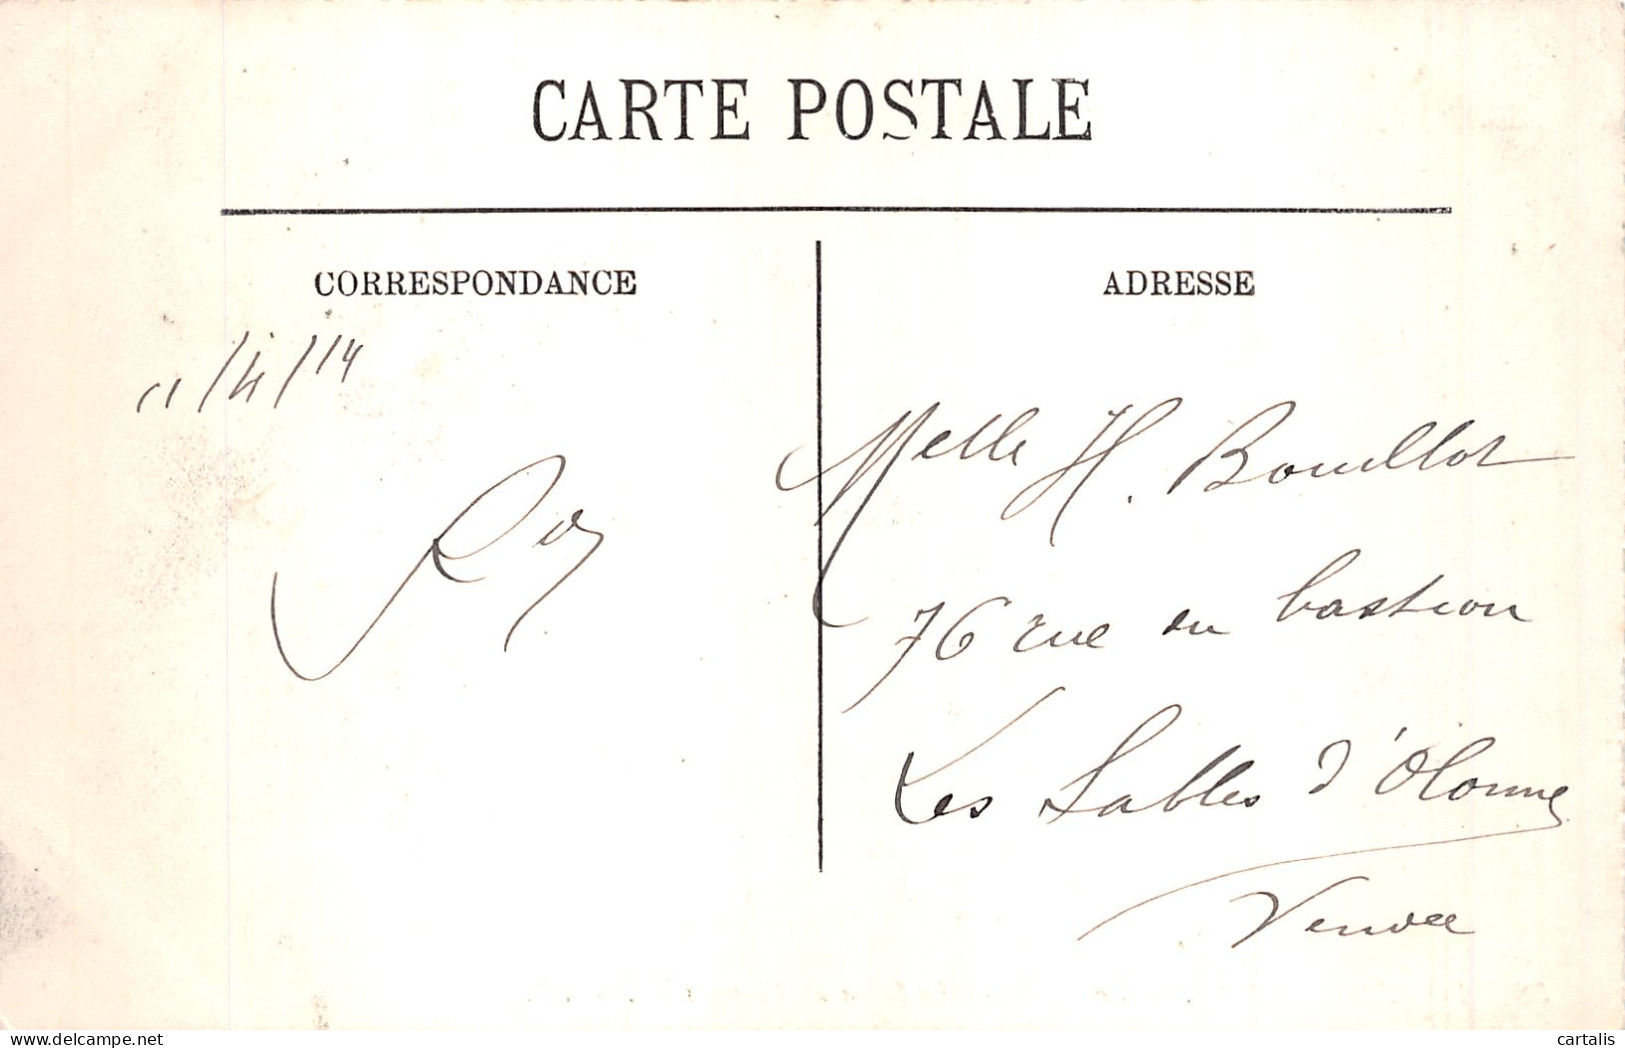 CARTE POSTALE
CORRESPONDANCE
11/4/14
ADRESSE
Melle H. Bouillot
76 rue du bastion
Les Sables d'Olonne
Vendée
cartalis